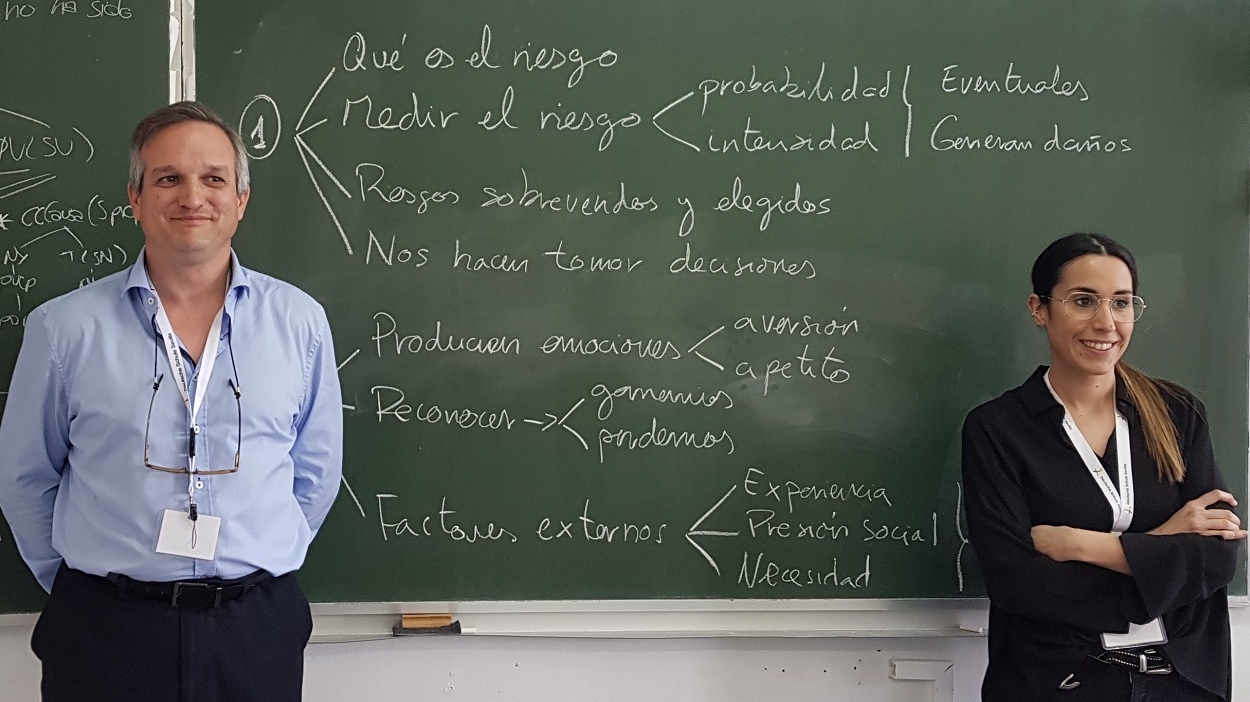 no ha sido
PV(SV)
①
Qué es el riesgo
Medir el riesgo
probabilidad
intensidad
Eventuales
Generan daños
Riesgos sobrevenidos y elegidos
Nos hacen tomar decisiones
Producen emociones
aversión
apetito
Reconocer →
ganamos
perdemos
Factores externos
Experiencia
Presión social
Necesidad
Deutsche Schule Sevilla